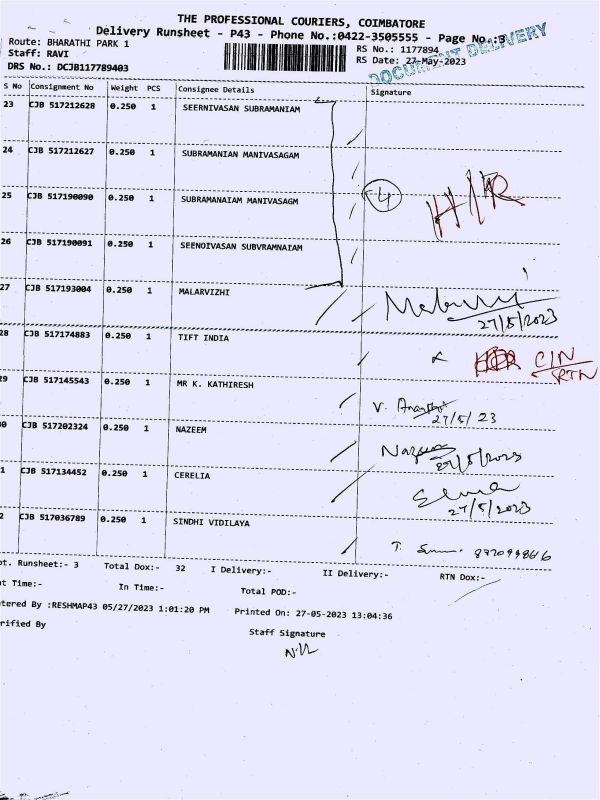 THE PROFESSIONAL COURIERS, COIMBATORE
Delivery Runsheet - P43 - Phone No.:0422-3505555 - Page No.:3
DOCUMENT DELIVERY
Route: BHARATHI PARK 1
RS No.: 1177894
Staff: RAVI
RS Date: 27-May-2023
DRS No.: DCJB117789403
S No Consignment No Weight PCS Consignee Details Signature
23 CJB 517212628 0.250 1 SEERNIVASAN SUBRAMANIAM
24 CJB 517212627 0.250 1 SUBRAMANIAN MANIVASAGAM
25 CJB 517190090 0.250 1 SUBRAMANAIAM MANIVASAGM 4 H/R
26 CJB 517190091 0.250 1 SEENOIVASAN SUBVRAMNAIAM
27 CJB 517193004 0.250 1 MALARVIZHI
27/5/2023
28 CJB 517174883 0.250 1 TIFT INDIA C/N
RTN
29 CJB 517145543 0.250 1 MR K. KATHIRESH V.
27/5/23
0 CJB 517202324 0.250 1 NAZEEM Nazeem
27/5/2023
1 CJB 517134452 0.250 1 CERELIA
27/5/2023
2 CJB 517036789 0.250 1 SINDHI VIDILAYA T.
ot. Runsheet:- 3 Total Dox:- 32 I Delivery:- II Delivery:- RTN Dox:-
t Time:- In Time:- Total POD:-
tered By :RESHMAP43 05/27/2023 1:01:20 PM Printed On: 27-05-2023 13:04:36
rified By
Staff Signature